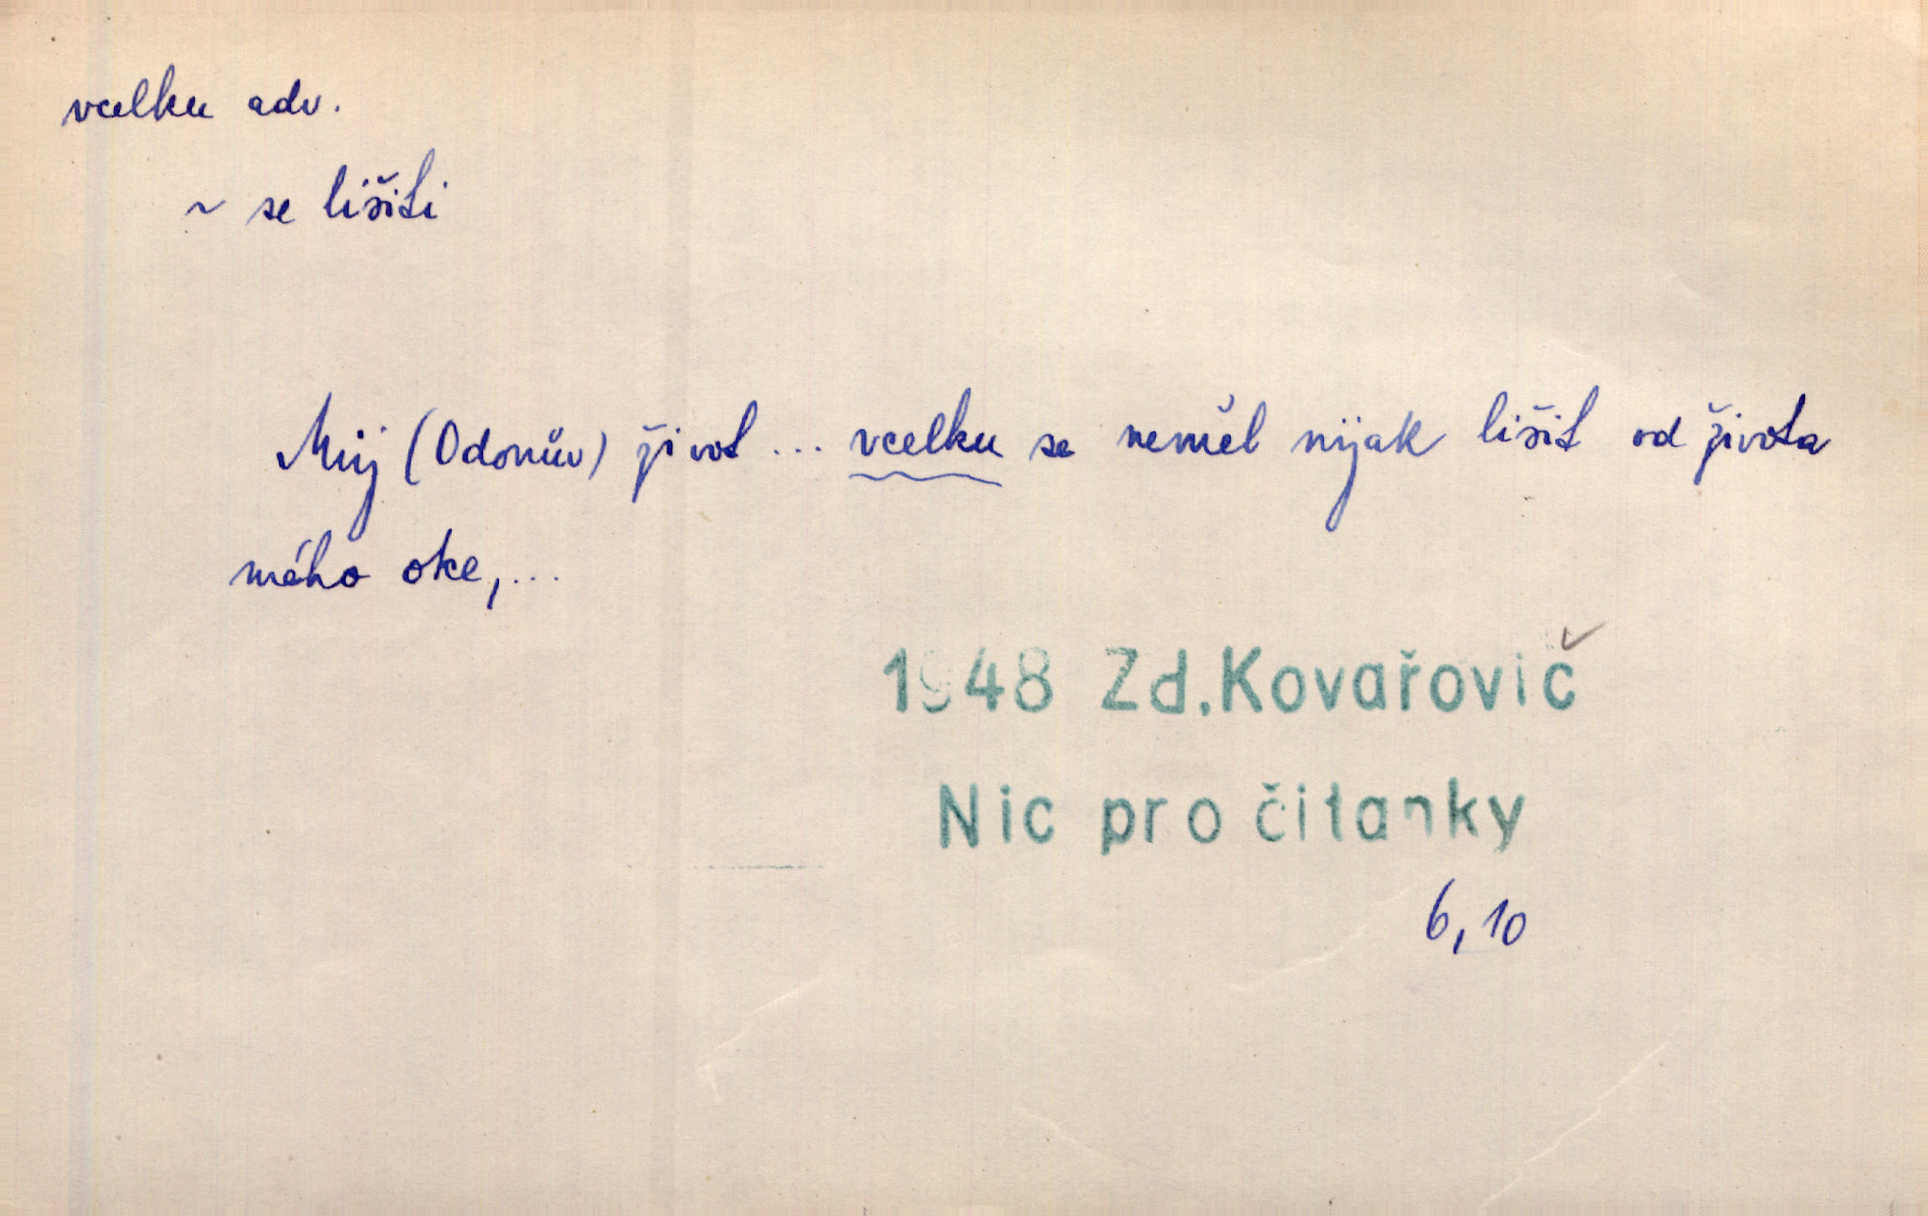 vcelku adv.
~ se lišiti
Můj (Odonův) život ... vcelku se neměl nijak lišit od života
mého otce, ...
1948 Zd. Kovařovič
Nic pro čitanky
6, 10